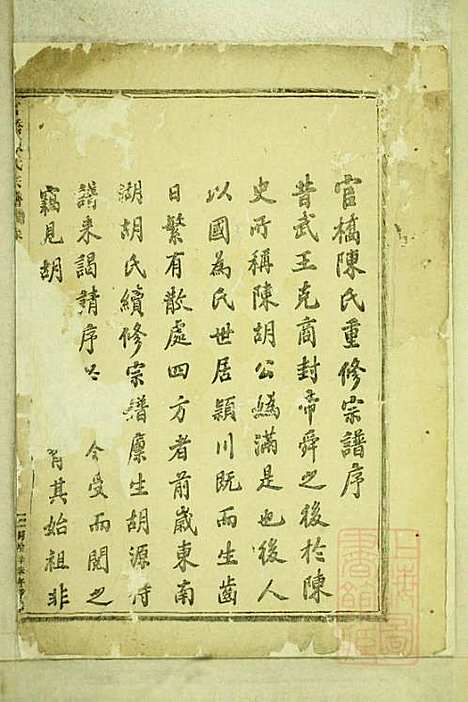 官橋陳氏重修宗譜序
昔武王克商封帝舜之後於陳
史所稱陳胡公媯滿是也後人
以國為氏世居潁川既而生齒
日繁有散處四方者前歲東南
湖胡氏續修宗譜廩生胡源
譜來謁請序 今受而閱之
竊見胡 其始祖非